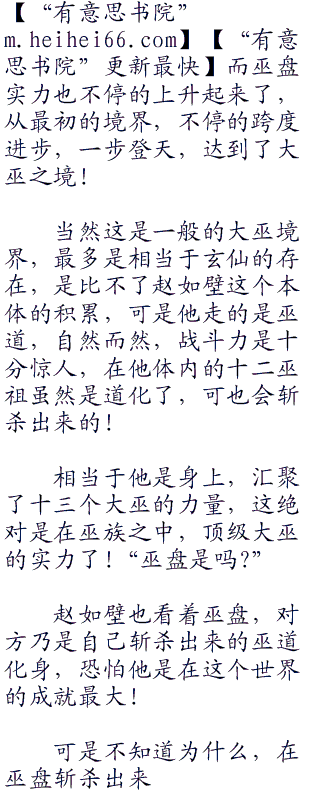 【“有意思书院”
m.heihei66.com】【“有意
思书院”更新最快】而巫盘
实力也不停的上升起来了，
从最初的境界，不停的跨度
进步，一步登天，达到了大
巫之境！
当然这是一般的大巫境
界，最多是相当于玄仙的存
在，是比不了赵如壁这个本
体的积累，可是他走的是巫
道，自然而然，战斗力是十
分惊人，在他体内的十二巫
祖虽然是道化了，可也会斩
杀出来的！
相当于他是身上，汇聚
了十三个大巫的力量，这绝
对是在巫族之中，顶级大巫
的实力了！“巫盘是吗？”
赵如壁也看着巫盘，对
方乃是自己斩杀出来的巫道
化身，恐怕他是在这个世界
的成就最大！
可是不知道为什么，在
巫盘斩杀出来